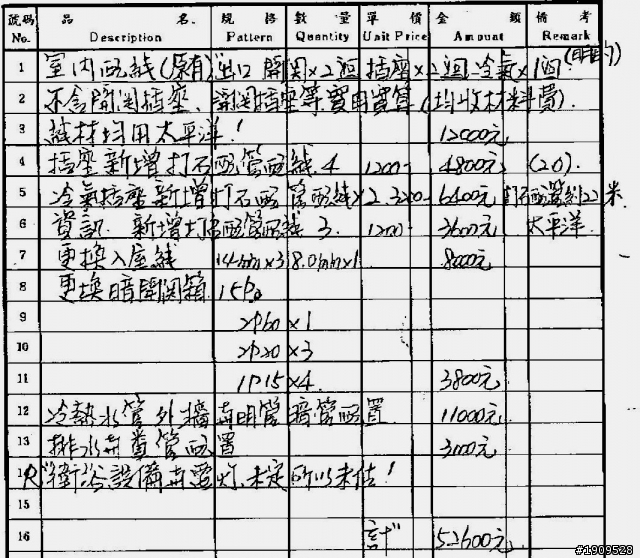 號碼 品名 規格 數量 單價 金額 備考
No. Description Pattern Quantity Unit Price Amount Remark
1 室内配線(原有)出口 開関×2迴 插座×2迴 冷氣×1迴
2 不含開関插座、開関插座等實用實算(均收材料費).
3 線材均用太平洋! 12000元
4 插座新增打石配管配線 4 1200- 4800元 (2.0)
5 冷氣插座新增打石配管配線×2 3200- 6400元 打石配管約22米
6 資訊 新增打石配管配線 3. 1200- 3600元 太平洋
7 更換入屋線 14mm×3 8.0mm×1 8000元
8 更換暗開関箱 15P.
9 2P60×1
10 2P20×3
11 1P15×4 3800元
12 冷熱水管外牆再明管 暗管配置 11000元
13 排水再糞管配置 3000元
衛浴設備再電灯.未定所以未估!
15
16 計 52600元
#1909528